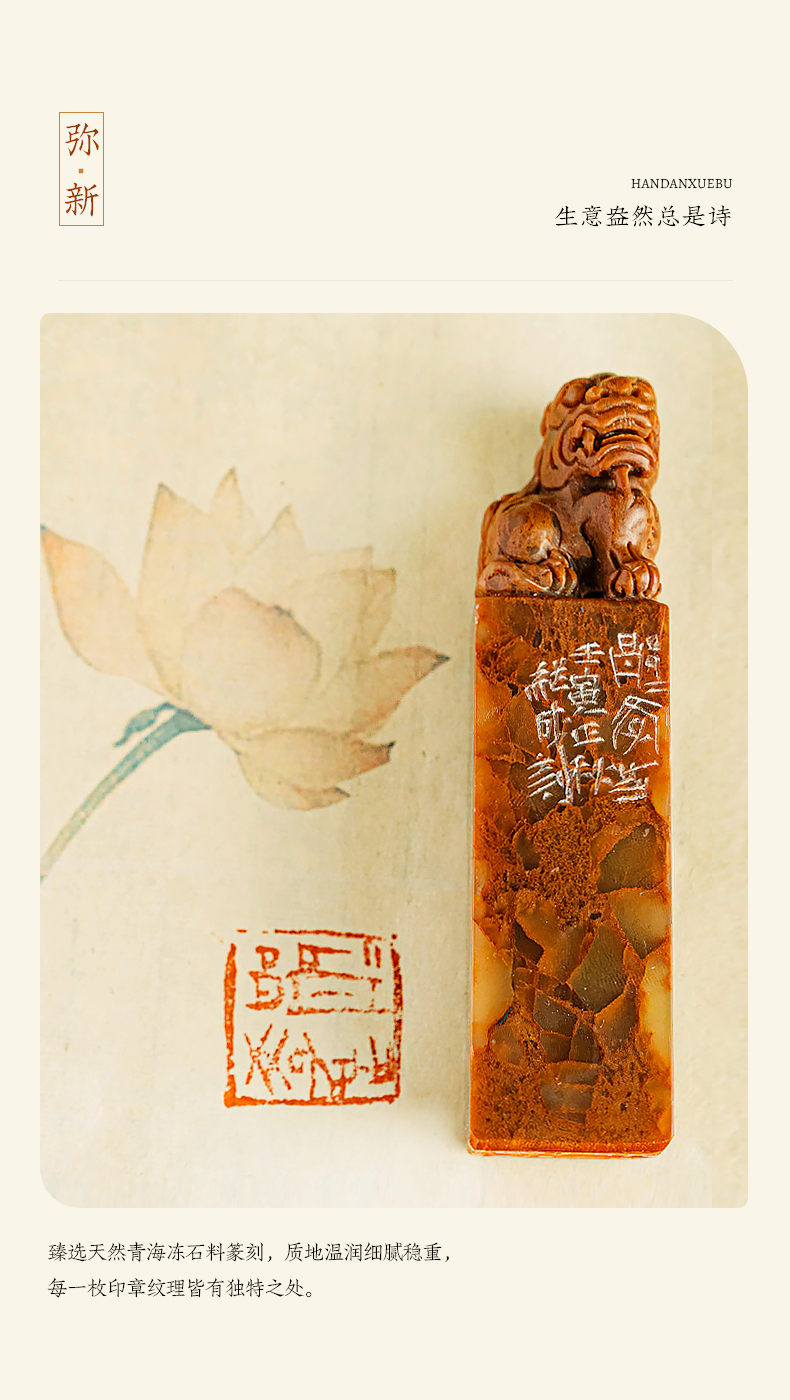 弥·新
HANDANXUEBU
生意盎然总是诗
壬寅正秋
臻选天然青海冻石料篆刻，质地温润细腻稳重，
每一枚印章纹理皆有独特之处。